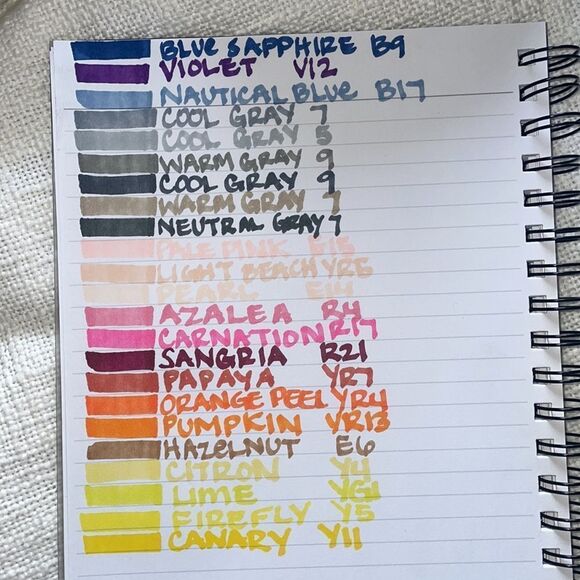 BLUE SAPPHIRE B9
VIOLET V12
NAUTICAL BLUE B17
COOL GRAY 7
COOL GRAY 5
WARM GRAY 9
COOL GRAY 9
WARM GRAY 7
NEUTRAL GRAY 7
PALE PINK
LIGHT BEACH YR5
PEARL E14
AZALEA R4
CARNATION R17
SANGRIA R21
PAPAYA YR7
ORANGE PEEL YR4
PUMPKIN YR13
HAZELNUT E6
CITRON Y4
LIME YG1
FIREFLY Y5
CANARY Y11